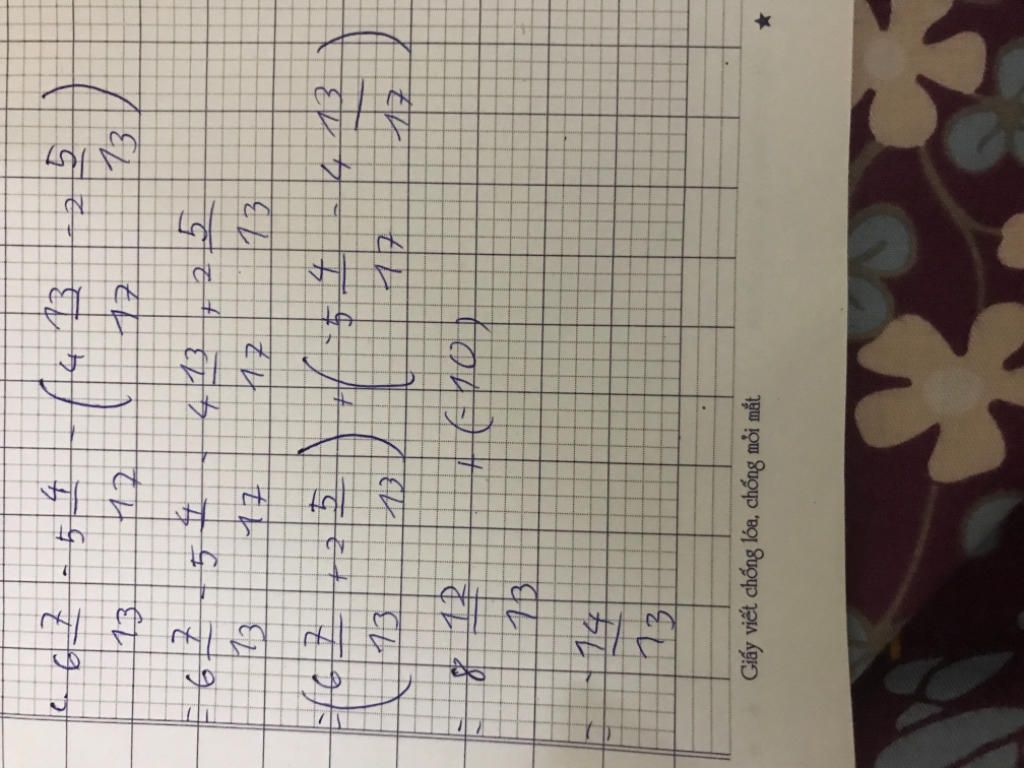 c. 6 7/13 - 5 4/17 - (4 13/17 - 2 5/13)
= 6 7/13 - 5 4/17 - 4 13/17 + 2 5/13
= (6 7/13 + 2 5/13) + (-5 4/17 - 4 13/17)
= 8 12/13 + (-10)
= - 14/13
Giấy viết chống lóa, chống mỏi mắt ★